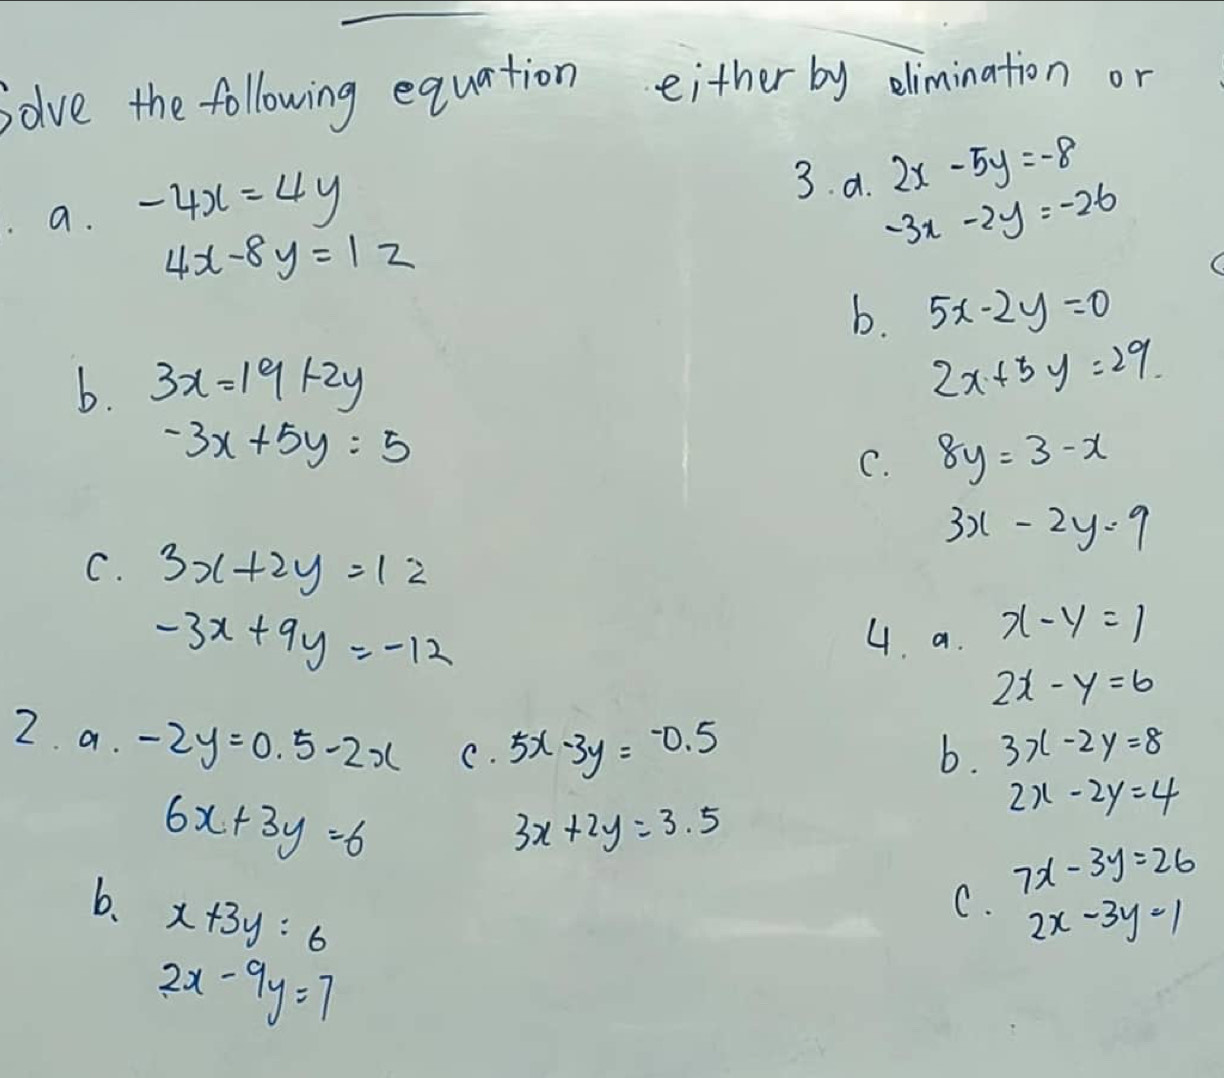 Solve the following equation either by elimination or
. a. -4x = 4y
4x-8y = 12
b. 3x = 19 + 2y
-3x + 5y = 5
c. 3x + 2y = 12
-3x + 9y = -12
2. a. -2y = 0.5 - 2x
6x + 3y = 6
b. x + 3y = 6
2x - 9y = 7
c. 5x - 3y = -0.5
3x + 2y = 3.5
3. a. 2x - 5y = -8
-3x - 2y = -26
b. 5x - 2y = 0
2x + 5y = 29.
c. 8y = 3 - x
3x - 2y = 9
4. a. x - y = 1
2x - y = 6
b. 3x - 2y = 8
2x - 2y = 4
c. 7x - 3y = 26
2x - 3y = 1